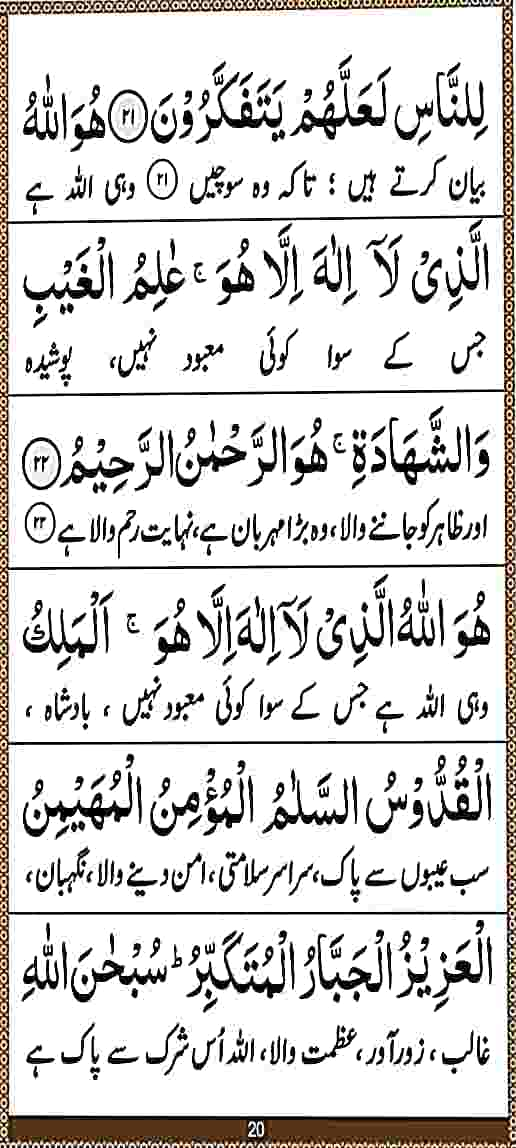 لِلنَّاسِ لَعَلَّهُمْ يَتَفَكَّرُوْنَ ﴿۲۱﴾ هُوَ اللّٰهُ
بیان کرتے ہیں ؛ تاکہ وہ سوچیں ﴿۲۱﴾ وہی اللہ ہے
الَّذِيْ لَآ اِلٰهَ اِلَّا هُوَ ۚ عٰلِمُ الْغَيْبِ
جس کے سوا کوئی معبود نہیں، پوشیدہ
وَالشَّهَادَةِ ۚ هُوَ الرَّحْمٰنُ الرَّحِيْمُ ﴿۲۲﴾
اور ظاہر کو جاننے والا، وہ بڑا مہربان ہے، نہایت رحم والا ہے ﴿۲۳﴾
هُوَ اللّٰهُ الَّذِيْ لَآ اِلٰهَ اِلَّا هُوَ ۚ اَلْمَلِكُ
وہی اللہ ہے جس کے سوا کوئی معبود نہیں ، بادشاہ ،
الْقُدُّوْسُ السَّلٰمُ الْمُؤْمِنُ الْمُهَيْمِنُ
سب عیبوں سے پاک، سراسر سلامتی، امن دینے والا، نگہبان،
الْعَزِيْزُ الْجَبَّارُ الْمُتَكَبِّرُ ؕ سُبْحٰنَ اللّٰهِ
غالب ، زور آور، عظمت والا، اللہ اُس شرک سے پاک ہے
20